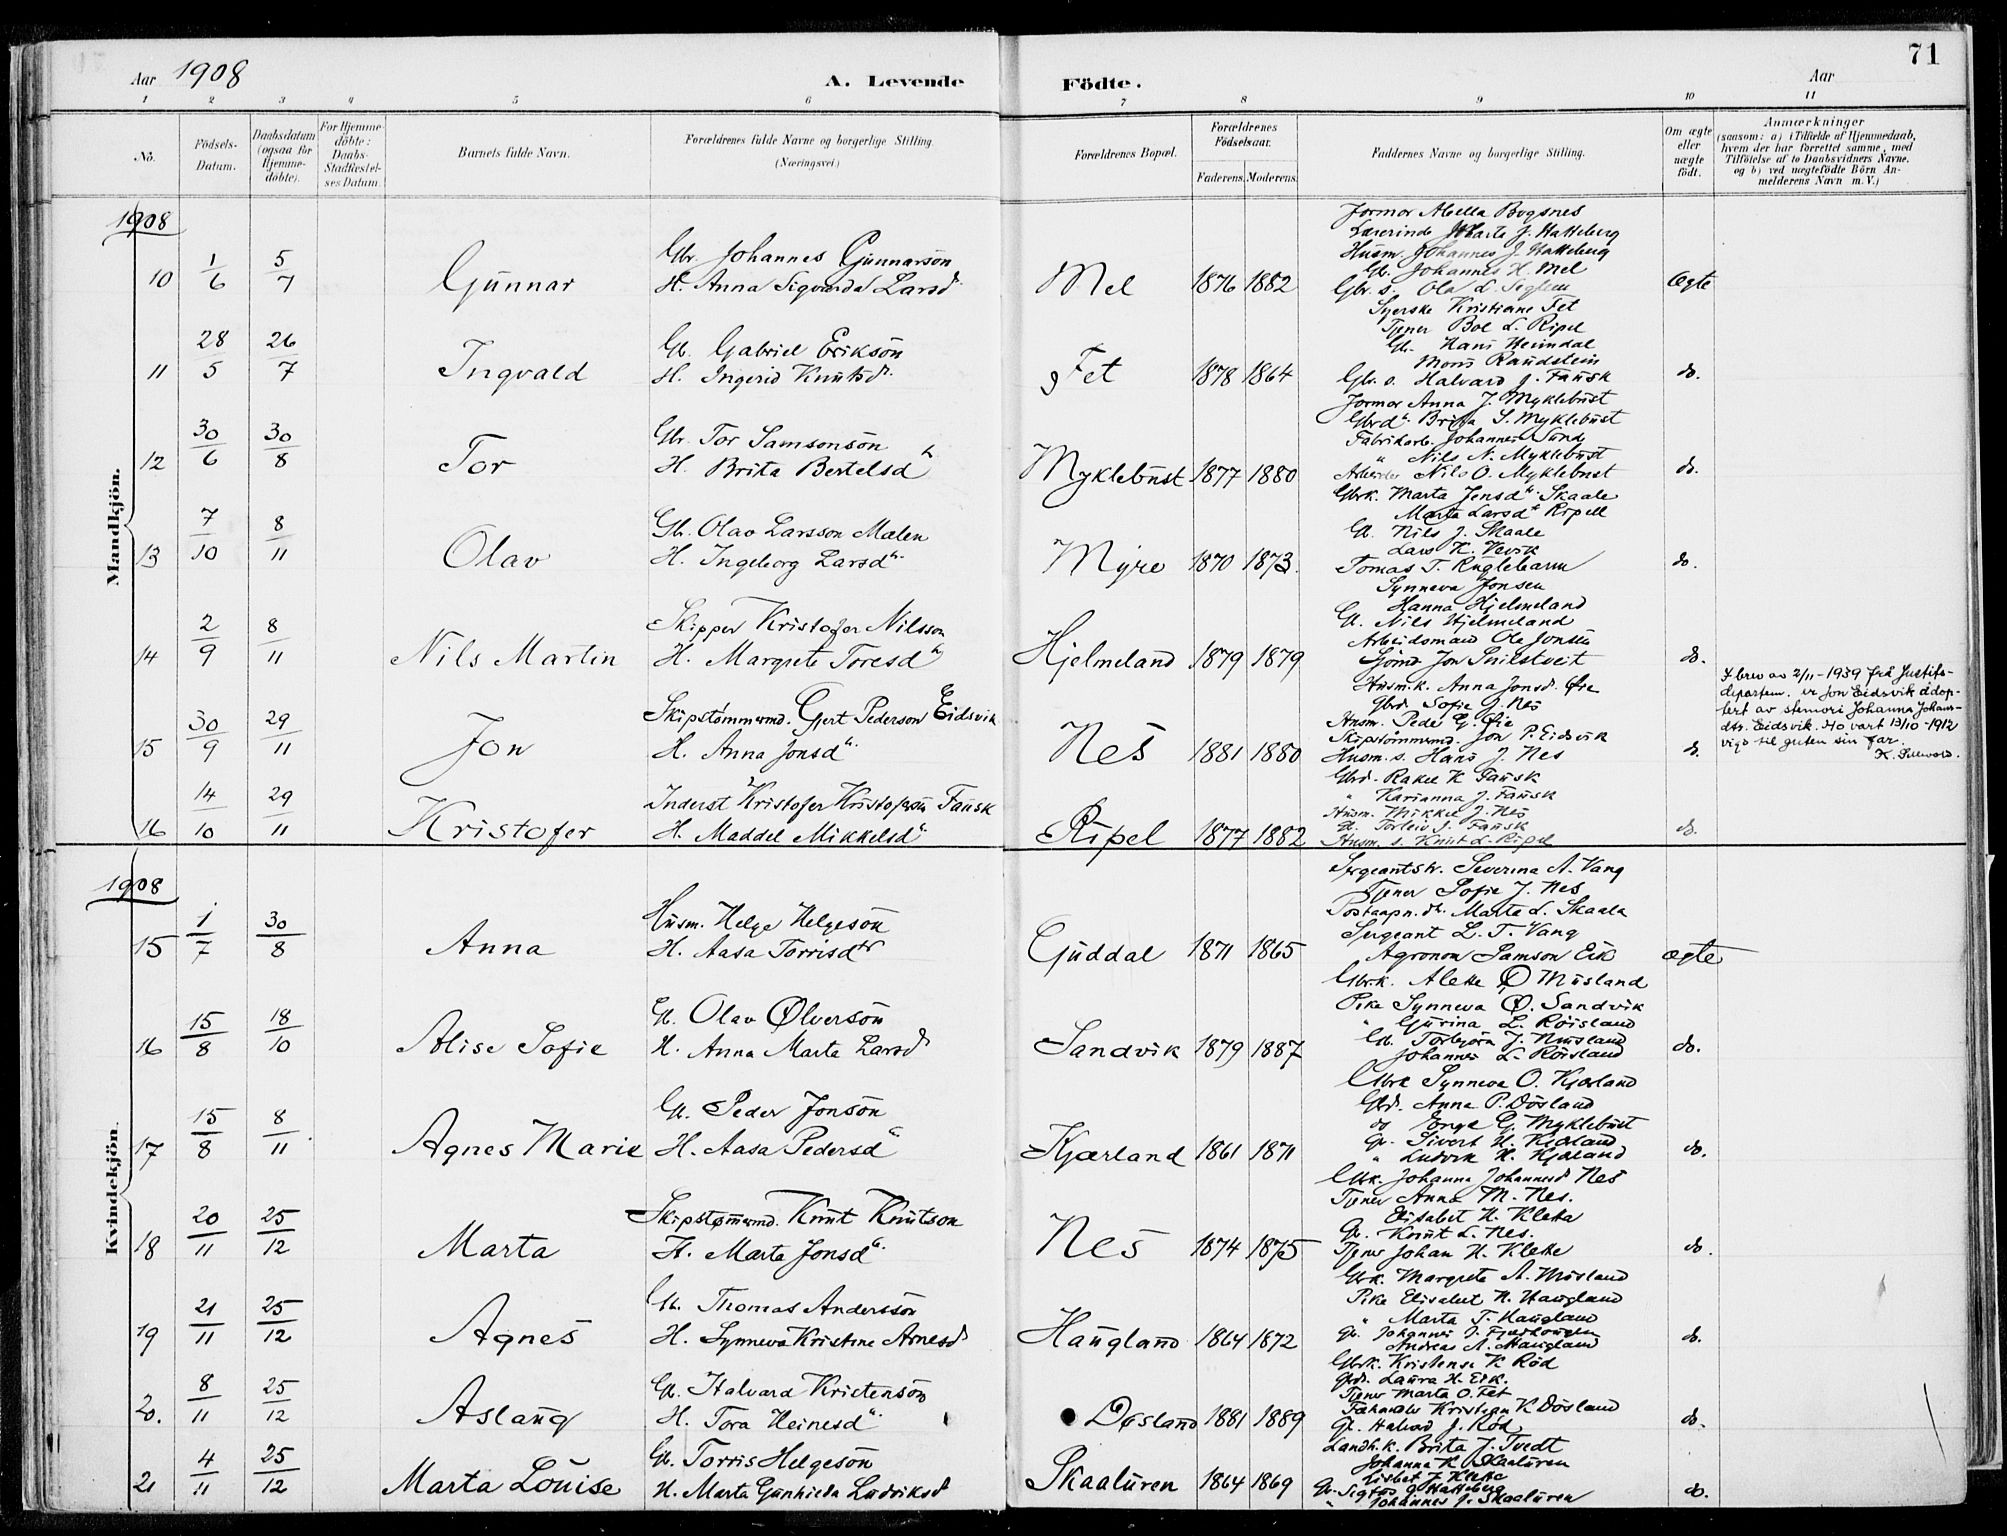 71
Aar 1908 A. Levende Födte. Aar
1 2 3 4 5 6 7 8 9 10 11
No.
Födsels-Datum.
Daabsdatum (ogsaa for Hjemme-döbte).
For Hjemme-döbte: Daabs-Stadfæstel-ses Datum.
Barnets fulde Navn.
Forældrenes fulde Navne og borgerlige Stilling. (Næringsvei.)
Forældrenes Bopæl.
Forældrenes Födselsaar.
Faderens. Moderens.
Faddernes Navne og borgerlige Stilling.
Om ægte eller uægte födt.
Anmærkninger
(saasom: a) i Tilfælde af Hjemmedaab,
hvem der har forrettet samme, med
Tilföielse af to Daabsvidners Navne.
og b) ved uægtefödte Börn An-
melderens Navn m. V.)
Mandkjön.
1908
10 1/6 5/7 Gunnar
Gbr. Johannes Gunnarson
H. Anna Sigvarda Larsd
Mel 1876 1882
Jormor Abella Bogsnes
Lærerinde Marta J. Hatteberg
Husm. Johannes J. Hatteberg
Gb. Johannes H. Mel
Gbr. s. Ola L.
Ægte
11 28/5 26/7 Ingvald
Gb. Gabriel Erikson
H. Ingerid Knutsd.
Fet 1878 1864
Syerske Kristiane Fet
Tjener Boe L. Ripel
Gb. Hans Heimdal
Mons Randstein
Gbr. s. Halvard J. Fausk
do.
12 30/6 30/8 Tor
Gbr. Tor Samsonson
H. Brita Bertelsd
Myklebust 1877 1880
Jormor Anna J. Myklebust
Gbrd. Brita S. Myklebust
Fabrikarb. Johannes Sund
" Nils N. Myklebust
Arbeider Nils O. Myklebust
do.
13 7/10 8/11 Olav
Gb. Olav Larsson Mælen
H. Ingeborg Larsd.
Myre 1870 1873.
Gbrk. Marta Jensd. Skaale
Marta Larsd Ripel
Gb. Nils J. Skaale
Lars K. Vevik
Tomas T.
do.
14 2/9 8/11 Nils Martin
Skipper Kristofer Nilsson
H. Margrete Toresd
Hjelmeland 1879 1879
Synneva Jonsen
Hanna Hjelmeland
Gb. Nils Hjelmeland
Arbeidsmand Ole Jonsen
Sjömd Jon Snilstveit
do.
15 30/9 29/11 Jon
Skipstømmermd. Gjert Pederson Eidsvik
H. Anna Jonsd.
Nes 1881 1880
Husm.k. Anna Jonsd. Øie
Gbrd. Sofie J. Nes
Husm. Peder G. Øie
Skipstömmermd. Jon P. Eidsvik
Husm. s. Hans J. Nes
do.
I brev av 2/11-1939 frå Justits-
departem. er Jon Eidsvik adop-
tert av stemori Johanna Johans-
dtr. Eidsvik. Ho vart 13/10-1912
vigd til guten sin far.
16 14/10 29/11 Kristofer
Inderst Kristofer Kristoferson Fausk
H. Maddel Mikkelsd.
Ripel 1877 1882
Gbrd. Rakel K Fausk
" Karianna J. Fausk
Husm. Mikkel J. Nes
Gb. Torleiv J. Fausk
Husm. s. Knut L. Ripel
do.
Kvindekjön.
1908
15 1/7 30/8 Anna
Husm. Helge Helgeson
H. Aasa Torrisdtr
Guddal 1871 1865
Sergeantsfr. Severina A. Vang
Tjener Sofie J. Nes
Postaapn. dt. Marta L. Skaala
Sergeant L. T. Vang
Agronom Samson Eik
ægte
16 15/8 18/10 Alise Sofie
Gb. Olav Ølverson
H. Anna Marta Larsd
Sandvik 1879 1887
Gbrk. Alette Ø Musland
Pike Synneva Ø. Sandvik
" Gurina L. Röisland
Gb. Torbjörn J. Musland
Johannes L. Röisland
do.
17 15/8 8/11 Agnes Marie
Gb. Peder Jonson
H. Aasa Pedersd
Kjærland 1861 1871
Gbrk Synneva O. Kjærland
Gbrd. Anna P. Dösland
do Enge G. Myklebust
Gb. Sivert H. Kjærland
" Ludvik H. Kjærland
do.
18 20/11 25/12 Marta
Skipstømmermd. Knut Knutson
H. Marta Jonsd.
Nes 1874 1875
Gbrk. Johanna Johannesd Nes
Tjener Anna M. Nes.
Elisabet H. Kletta
Gb. Knut L. Nes.
Tjener Johan H. Klette
do.
19 21/11 25/12 Agnes
Gb. Thomas Andersson
H. Synneva Kristine Arnesd
Haugland 1864 1872
Gbrk. Margreta A. Musland
Pike Elisabet N. Haugland
" Marta T. Haugland
Gb. Johannes J.
Andreas A. Haugland
do.
20. 8/11 25/12 Aslaug
Gb. Halvard Kristenson
H. Tora Heinesd.
Dösland 1881 1889
Gbrk. Kristense K Röd
Gbrd. Laura H. Eik.
Tjener Marta O. Fet
Kristian K Dösland
Gb. Halvard J. Röd
do.
21 4/11 25/12 Marta Louise
Gb. Torris Helgeson
H. Marta Gunhilda Ludviksd
Skaaluren 1864 1869
Landh.k. Brita J. Tvedt
Johanna K. Skaaluren
Lisbet J. Klette
Gb. Sigfos J Hatteberg
" Johannes J. Skaaluren
do.